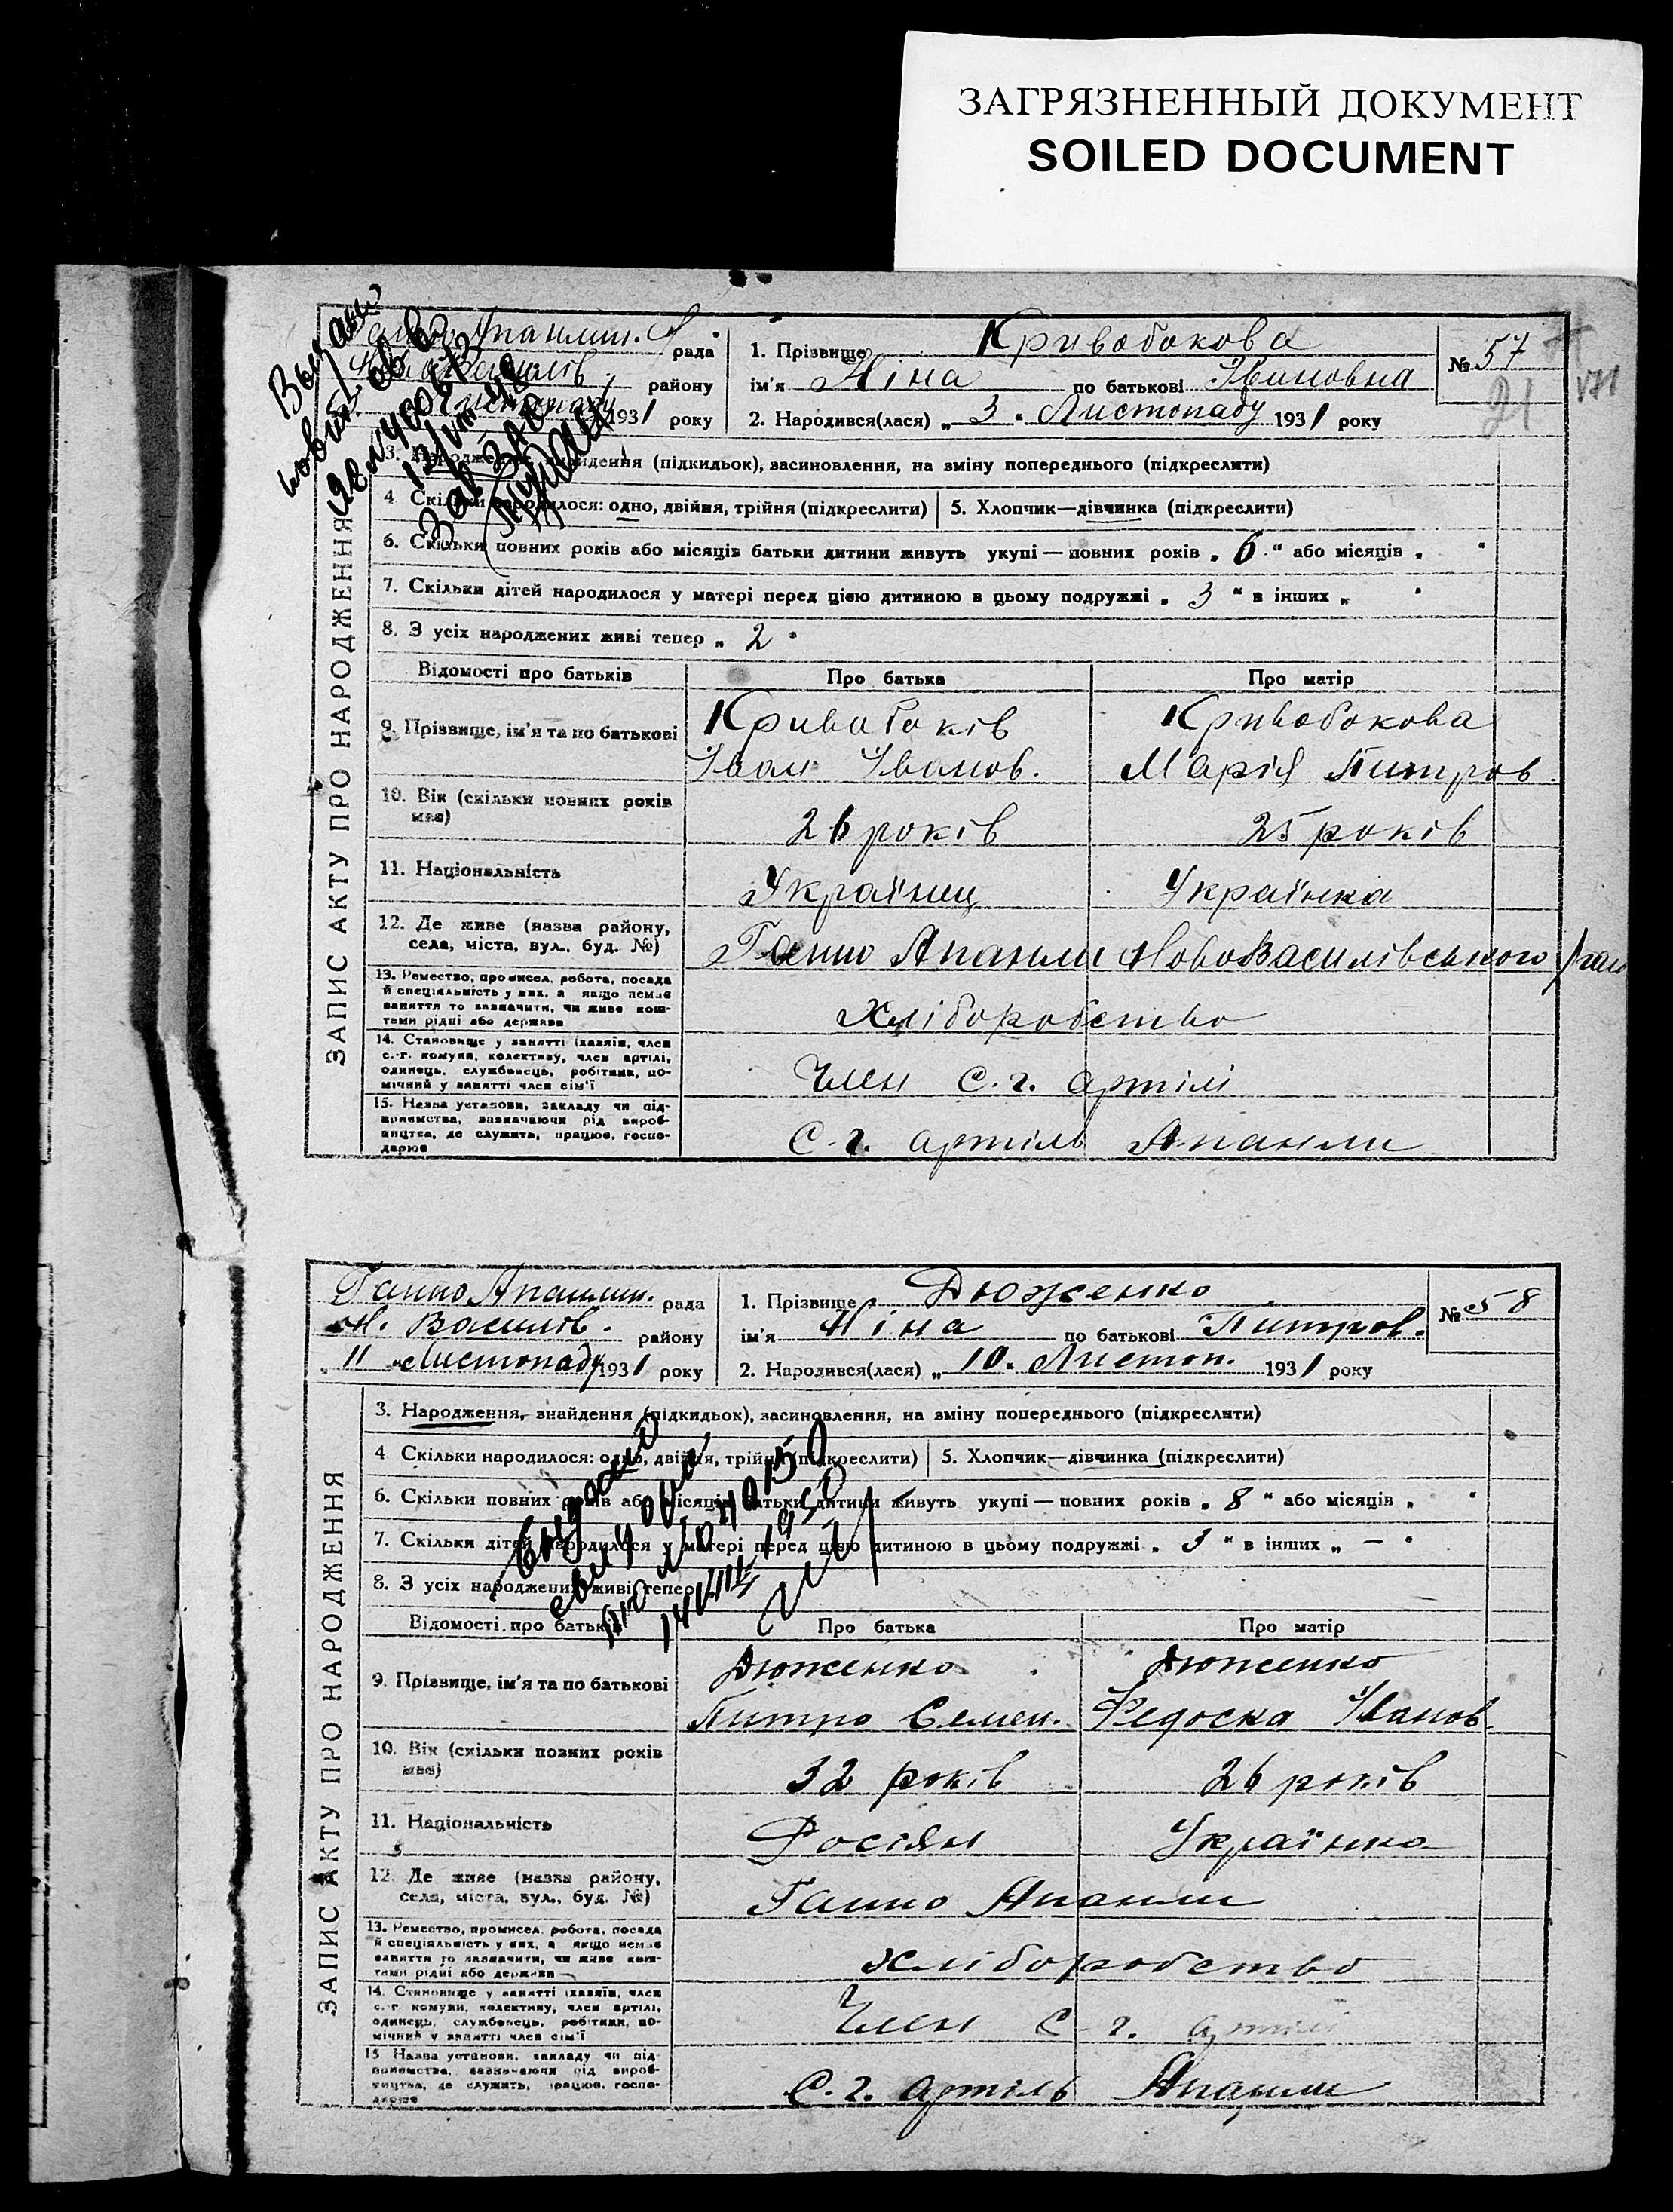 ЗАГРЯЗНЕННЫЙ ДОКУМЕНТ
SOILED DOCUMENT
ЗАПИС АКТУ ПРО НАРОДЖЕННЯ
рада
району
Листопаду 1931 року
1. Прізвище Кривобокова
№ 57
21
ім'я Ніна по батькові Івановна
2. Народився(лася) „ 3 " Листопаду 1931 року
знайдення (підкидьок), засиновлення, на зміну попереднього (підкреслити)
4 Скільки народилося: одно, двійня, трійня (підкреслити) 5. Хлопчик—дівчинка (підкреслити)
6. Скільки повних років або місяців батьки дитини живуть укупі — повних років „ 6 " або місяців „ "
7. Скільки дітей народилося у матері перед цією дитиною в цьому подружжі „ 3 " в інших „ "
8. З усіх народжених живі тепер „ 2 "
Відомості про батьків Про батька Про матір
9. Прізвище, ім'я та по батькові Кривобоків Кривобокова
Іван Іванов. Марія Питров.
10. Вік (скільки повних років має) 26 років 25 років
11. Національність Українец Українка
12. Де живе (назва району, села, міста, вул., буд. №) Ганно Апанли НовоВасилівського
13. Ремество, промисел, робота, посада й спеціяльність у них, а якщо немає заняття то зазначити, чи живе коштами рідні або держави Хліборобство
14. Становище у занятті (хазяїн, член с.-г. комуни, колективу, член артілі, одинець, службовець, робітник, помічний у занятті член сім'ї Член С. г. артілі
15. Назва установи, закладу чи підприємства, зазначаючи рід виробництва, де служить, працює, господарює С-г. артіль Апанли
ЗАПИС АКТУ ПРО НАРОДЖЕННЯ
Ганно Апанлин. рада
Н. Василів. району
„ 11 " Листопаду 1931 року
1. Прізвище Дюженко
№ 58
ім'я Ніна по батькові Питров.
2. Народився(лася) „ 10. Листоп. 1931 року
3. Народження, знайдення (підкидьок), засиновлення, на зміну попереднього (підкреслити)
4 Скільки народилося: одно, двійня, трійня (підкреслити) 5. Хлопчик—дівчинка (підкреслити)
6. Скільки повних років або місяців батьки дитини живуть укупі — повних років „ 8 " або місяців „ "
7. Скільки дітей народилося у матері перед цією дитиною в цьому подружжі „ 3 " в інших „ — "
8. З усіх народжених живі тепер
Відомості про батьків Про батька Про матір
9. Прізвище, ім'я та по батькові Дюженко Дюженко
Питро Семен. Федоска Іванов.
10. Вік (скільки повних років має) 32 років 26 років
11. Національність Росіян Українка
12. Де живе (назва району, села, міста, вул., буд. №) Ганно Апанли
13. Ремество, промисел, робота, посада й спеціяльність у них, а якщо немає заняття то зазначити, чи живе коштами рідні або держави хліборобство
14. Становище у занятті (хазяїн, член с.-г. комуни, колективу, член артілі, одинець, службовець, робітник, помічний у занятті член сім'ї Член С-г. артілі
15 Назва установи, закладу чи підприємства, зазначаючи рід виробництва, де служить, працює, господарює С. г. артіль Апанли